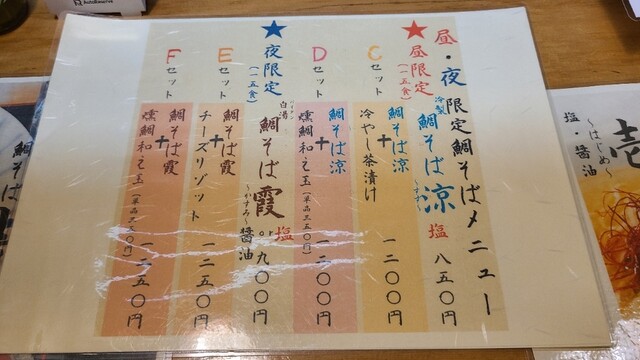 昼・夜限定鯛そばメニュー
★昼限定（一五食）
冷製 鯛そば涼 〜すず〜 塩 八五〇円
Cセット
鯛そば涼＋冷やし茶漬け 一二〇〇円
Dセット
鯛そば涼＋燻鯛和え玉（単品三五〇円） 一二〇〇円
★夜限定（一五食）
白湯 鯛そば霞 〜かすみ〜 塩or醤油 九〇〇円
Eセット
鯛そば霞＋チーズリゾット 一二五〇円
Fセット
鯛そば霞＋燻鯛和え玉（単品三五〇円） 一二五〇円
壱
〜はじめ〜
塩・醤油
鯛そば